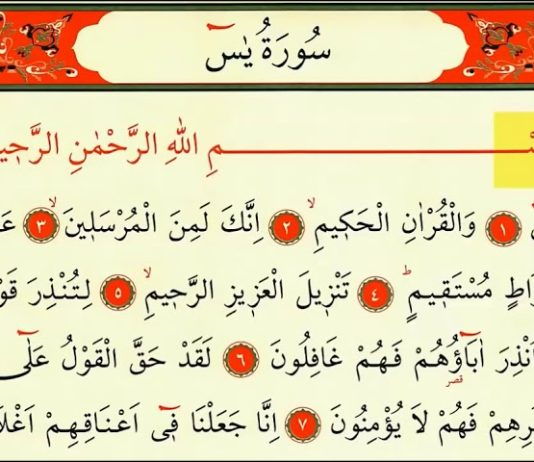 سُورَةُ يٰسٓ
ـمِ اللهِ الرَّحْمٰنِ الرَّحٖيـ
﴿١﴾ وَالْقُرْاٰنِ الْحَكٖيمِۙ ﴿٢﴾ اِنَّكَ لَمِنَ الْمُرْسَلٖينَۙ ﴿٣﴾ عَـ
ـرَاطٍ مُسْتَقٖيمٍؕ ﴿٤﴾ تَنْزٖيلَ الْعَزٖيزِ الرَّحٖيمِۙ ﴿٥﴾ لِتُنْذِرَ قَوْ
اُنْذِرَ اٰبَٓاؤُ۬هُمْ فَهُمْ غَافِلُونَ ﴿٦﴾ لَقَدْ حَقَّ الْقَوْلُ عَلٰٓى
قصر
ـرِهِمْ فَهُمْ لَا يُؤْمِنُونَ ﴿٧﴾ اِنَّا جَعَلْنَا فٖٓى اَعْنَاقِهِمْ اَغْلَا